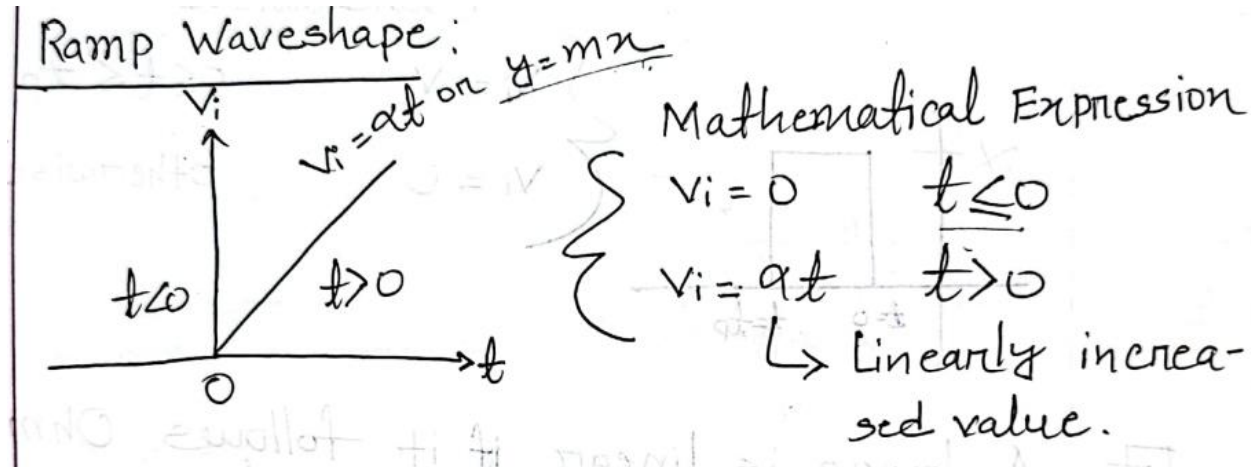 Ramp Waveshape:
Vi
Vi = αt or y=mx
t<0
t>0
t
0
Mathematical Expression
Vi = 0 t≤0
Vi = αt t>0
↳ Linearly increa-
sed value.